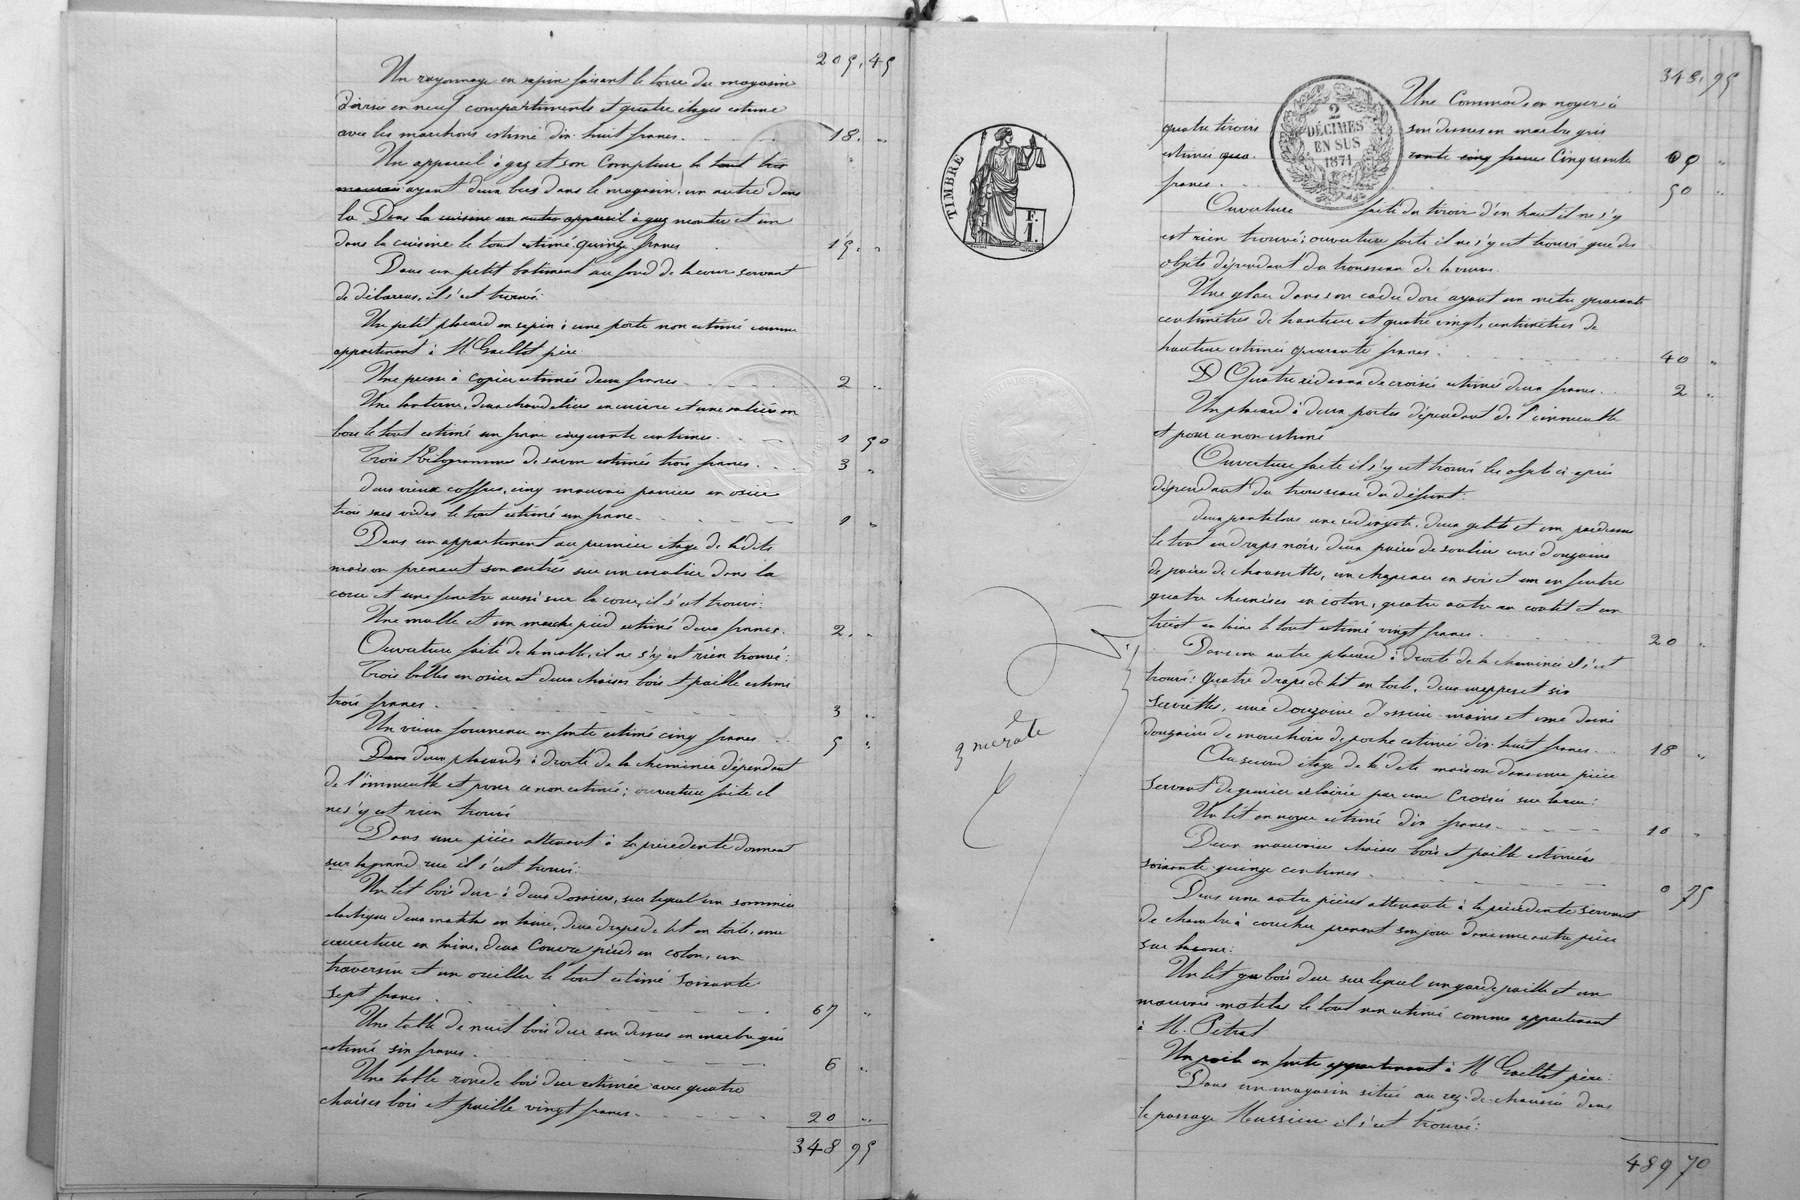 209, 45
Un rayonnage en sapin faisant le tour du magasin
divisé en neuf compartiments et quatre étages estimé
avec les marchons estimé dix huit francs. 18. "
Un appareil à gaz et son Compteur le tout très
mauvais ayant deux becs dans le magasin, un autre dans
la Dans la cuisine un autre appareil à gaz montre et un
dans la cuisine le tout estimé quinze francs 15. "
Dans un petit batiment au fond de la cour servant
de débarras, il s'est trouvé:
Un petit placard en sapin à une porte non estimé comme
appartenant à M Gaillot père
Une presse à copier estimée deux francs 2 "
Une lanterne, deux chandeliers en cuivre et une salière en
bois le tout estimé un franc cinquante centimes. 1 50
Trois Kilogrammes de savon estimés trois francs. 3 "
deux vieux coffres, cinq mauvais paniers en osier
trois sacs vides le tout estimé un franc. 1 "
Dans un appartement au premier étage de ladite
maison prenant son entrée sur un escalier dans la
cour et une fenetre aussi sur la cour, il s'est trouvé:
Une malle et un marche pied estimé deux francs. 2. "
Ouverture faite de la malle, il ne s'y est rien trouvé:
Trois balles en osier et deux chaises bois et paille estimé
trois francs. 3 "
Un vieux fourneau en fonte estimé cinq francs 5 "
Dans deux placards à droite de la cheminée dépendant
de l'immeuble et pour ce non estimés; ouverture faite il
ne s'y est rien trouvé
Dans une pièce attenant à la précédente donnant
sur la grand rue il s'est trouvé:
Un lit bois dur à deux dossiers, sur lequel un sommier
élastique deux matelas en laine, deux draps de lit en toile, une
couverture en laine, deux Couvre pieds en coton, un
traversin et un oreiller le tout estimé soixante
sept francs. 67 "
Une table de nuit bois dur son dessus en marbre gris
estimé six francs. 6 "
Une table ronde bois dur estimée avec quatre
chaises bois et paille vingt francs. 20 "
348 95
TIMBRE
F.
1.
2
DÉCIMES
EN SUS
1871
348, 95
Une Commode en noyer à
quatre tiroirs son dessus en marbre gris
estimée qua rante cinq francs Cinquante
francs. 50 "
Ouverture faite du tiroir d'en haut il ne s'y
est rien trouvé; ouverture faite il ne s'y est trouvé que des
objets dépendant du trousseau de la veuve.
Une glace dans son cadre doré ayant un mètre quarante
centimètres de hauteur et quatre vingt centimètres de
hauteur estimée quarante francs. 40 "
Quatre rideaux de croisée estimé deux francs. 2 "
Un placard à deux portes dépendant de l'immeuble
et pour ce non estimé
Ouverture faite il s'y est trouvé les objets ci-après
dépendant du trousseau du défunt:
deux pantalons une redingote, deux gilets et un pardessus
le tout en draps noir, deux paires de souliers une douzaine
de paires de chaussettes, un chapeau en soie et un en feutre
quatre chemises en coton, quatre autre en coutil et un
tricot en laine le tout estimé vingt francs. 20 "
Dans un autre placard à droite de la cheminée il s'est
trouvé: Quatre draps de lit en toile, deux nappes et six
serviettes, une douzaine d'essuie-mains et une demi
douzaine de mouchoirs de poche estimé dix huit francs. 18 "
Au second étage de ladite maison dans une pièce
servant de grenier éclairée par une Croisée sur la rue:
Un lit en noyer estimé dix francs. 10 "
Deux mauvaises chaises bois et paille estimées
soixante quinze centimes. 0 75
Dans une autre pièce attenante à la précédente servant
de chambre à coucher prenant son jour dans une autre pièce
sur la cour:
Un lit bois dur sur lequel un garde paille et un
mauvais matelas le tout non estimé comme appartenant
à M. Pétrat
Un poele en fonte appartenant à M Gaillot père:
Dans un magasin situé au rez-de-chaussée dans
le passage Mussieu il s'est trouvé:
489 70